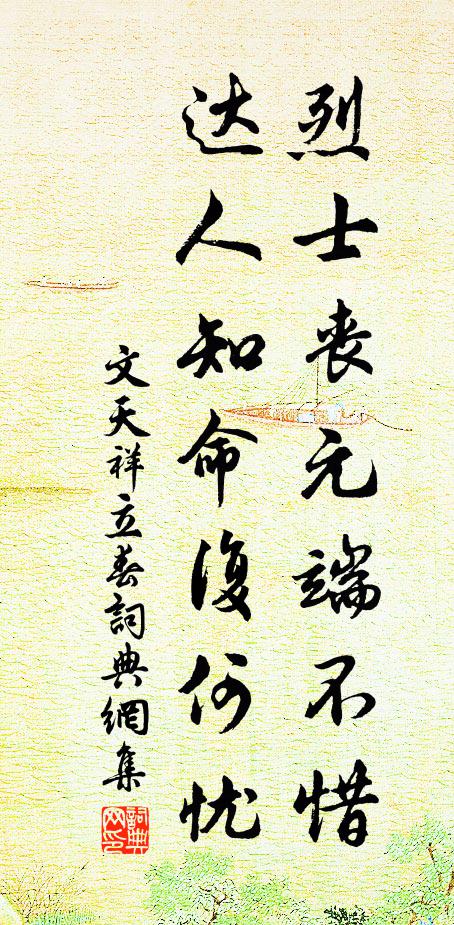 烈士丧元端不惜
达人知命復何忧
文天祥立春詞典網集
詞典网印